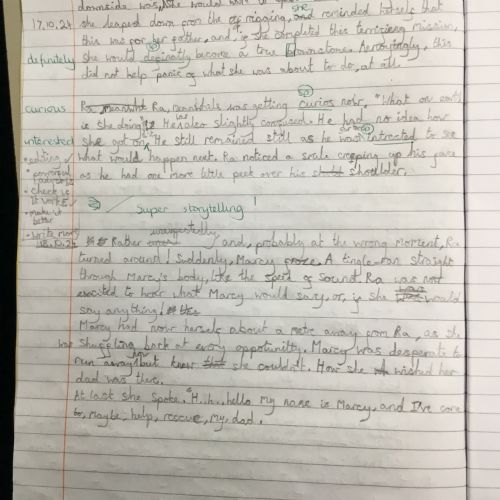 downside was, she would
17.10.24 she leaped down from the rigging, and she reminded herself that
this was for her father, and if she completed this terrifying mission,
definitely she would definatly become a true brownstone. Annoyingly, this
did not help panic of what she was about to do, at all.
curious Ra, meanwhile was getting curios now. "What on earth
is she doing?" He was also slightly confused. He had no idea how
interested she got on. He still remained still as he was intrested to see
• editing what would happen next. Ra noticed a smile creeping up his face
as he had one more little peek over his shoulder.
• check it works
• make it better
Super storytelling!
• write more
18.10.24 Rather unexpectedly and, probably at the wrong moment, Ra
turned around! Suddenly, Marcy froze. A tingle ran straight
through Marcy's body, like the speed of sound. Ra was not
excited to hear what Marcy would say, or, if she would
say anything!
Marcy had now herself about a metre away from Ra, as she
was shuffling back at every opportunity. Marcy was desperate to
run away, but knew she couldn't. How she wished her
dad was there.
At last she spoke. "H..h..hello my name is Marcy, and I've come
to, maybe, help, rescue, my, dad.